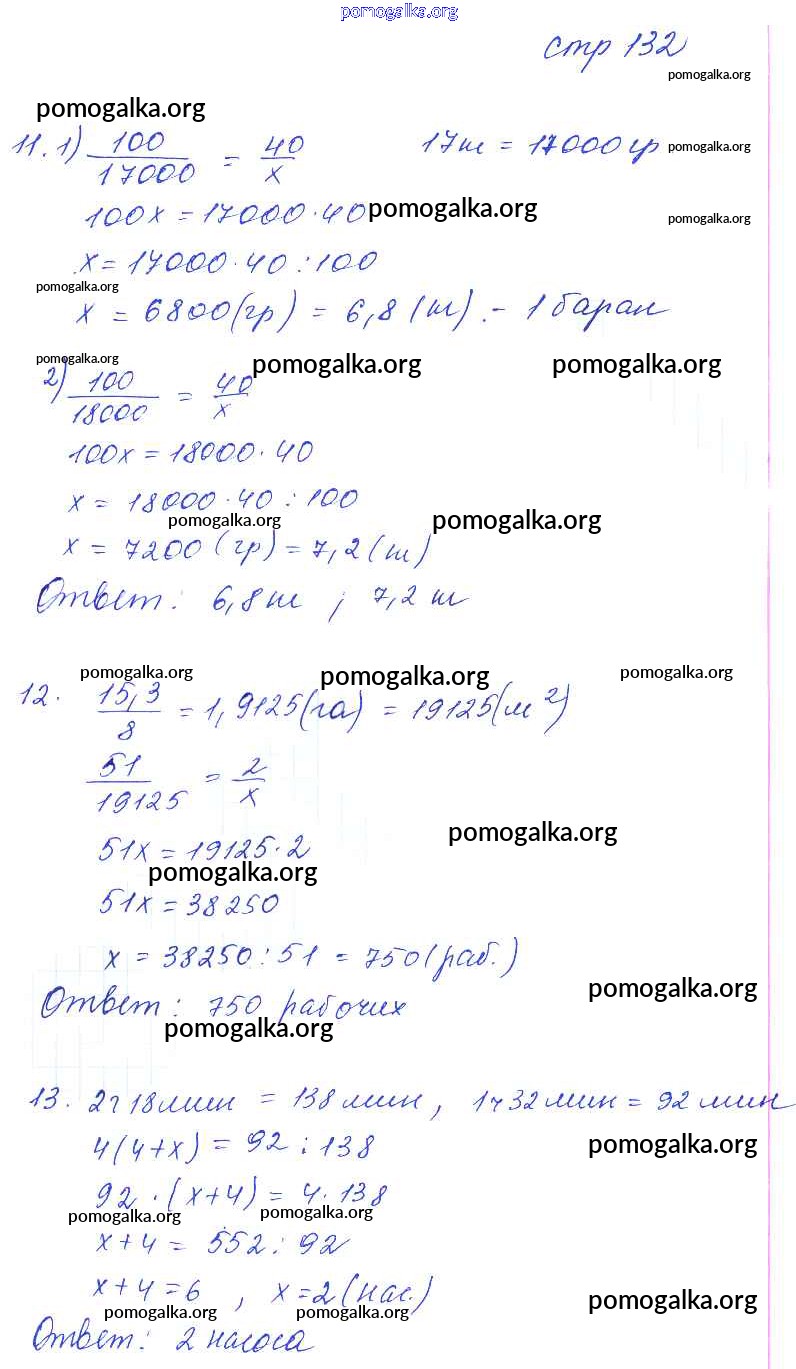 pomogalka.org
стр 132
pomogalka.org
pomogalka.org
11. 1) 100/17000 = 40/x 17т = 17000гр pomogalka.org
100x = 17000·40 pomogalka.org pomogalka.org
x = 17000·40:100
pomogalka.org
x = 6800(гр) = 6,8(т). - 1 баран
pomogalka.org pomogalka.org pomogalka.org
2) 100/18000 = 40/x
100x = 18000·40
x = 18000·40:100
pomogalka.org pomogalka.org
x = 7200(гр) = 7,2(т)
Ответ: 6,8т ; 7,2т
pomogalka.org pomogalka.org pomogalka.org
12. 15,3/8 = 1,9125(га) = 19125(м²)
51/19125 = 2/x
51x = 19125·2 pomogalka.org
pomogalka.org
51x = 38250
x = 38250:51 = 750(раб.)
pomogalka.org
Ответ: 750 рабочих
pomogalka.org
13. 2ч 18мин = 138мин, 1ч 32мин = 92мин
4(4+x) = 92:138 pomogalka.org
92·(x+4) = 4·138
pomogalka.org pomogalka.org
x+4 = 552:92
x+4=6, x=2(нас.)
pomogalka.org pomogalka.org pomogalka.org
Ответ: 2 насоса